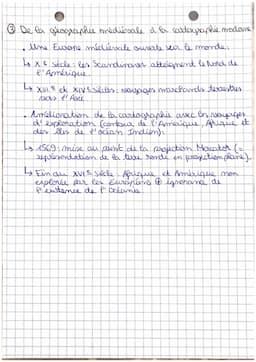 ③ De la géographie médiévale à la cartographie moderne
• Une Europe médiévale ouverte sur le monde.
↳ X e siècle : les Scandinaves atteignent le Nord de
l'Amérique.
↳ XIII e et XIV e siècles : voyages marchands terrestres
vers l'Asie
• Amélioration de la cartographie avec les voyages
d'exploration (contour de l'Amérique, Afrique et
des îles de l'océan Indien).
↳ 1569 : mise au point de la projection Mercator (=
représentation de la terre ronde en projection plane).
↳ Fin du XVI e siècle : Afrique et Amérique non
explorées par les Européens ⊕ ignorance de
l'existence de l'Océanie